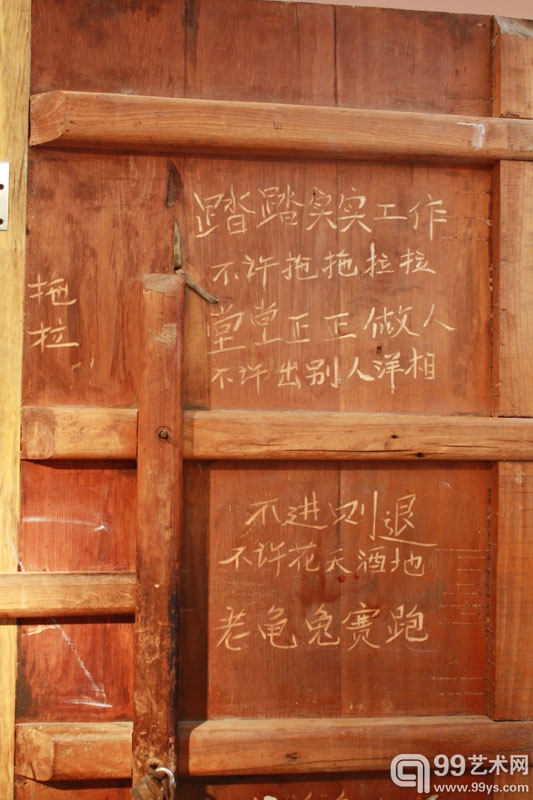 踏踏实实工作
不许拖拖拉拉
堂堂正正做人
不许出别人洋相
拖
拉
不进则退
不许花天酒地
老龟兔赛跑
99艺术网
www.99ys.com